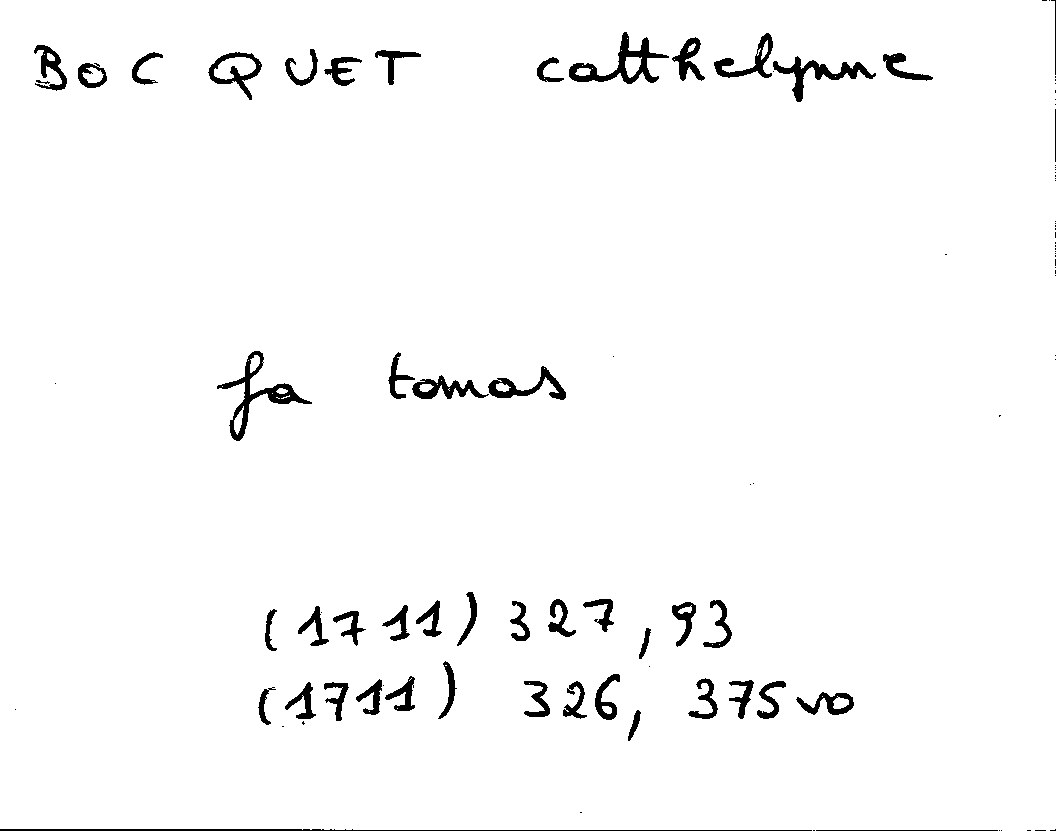 BOCQUET catthelynne
fa tomas
(1711) 327, 93
(1711) 326, 375 vo